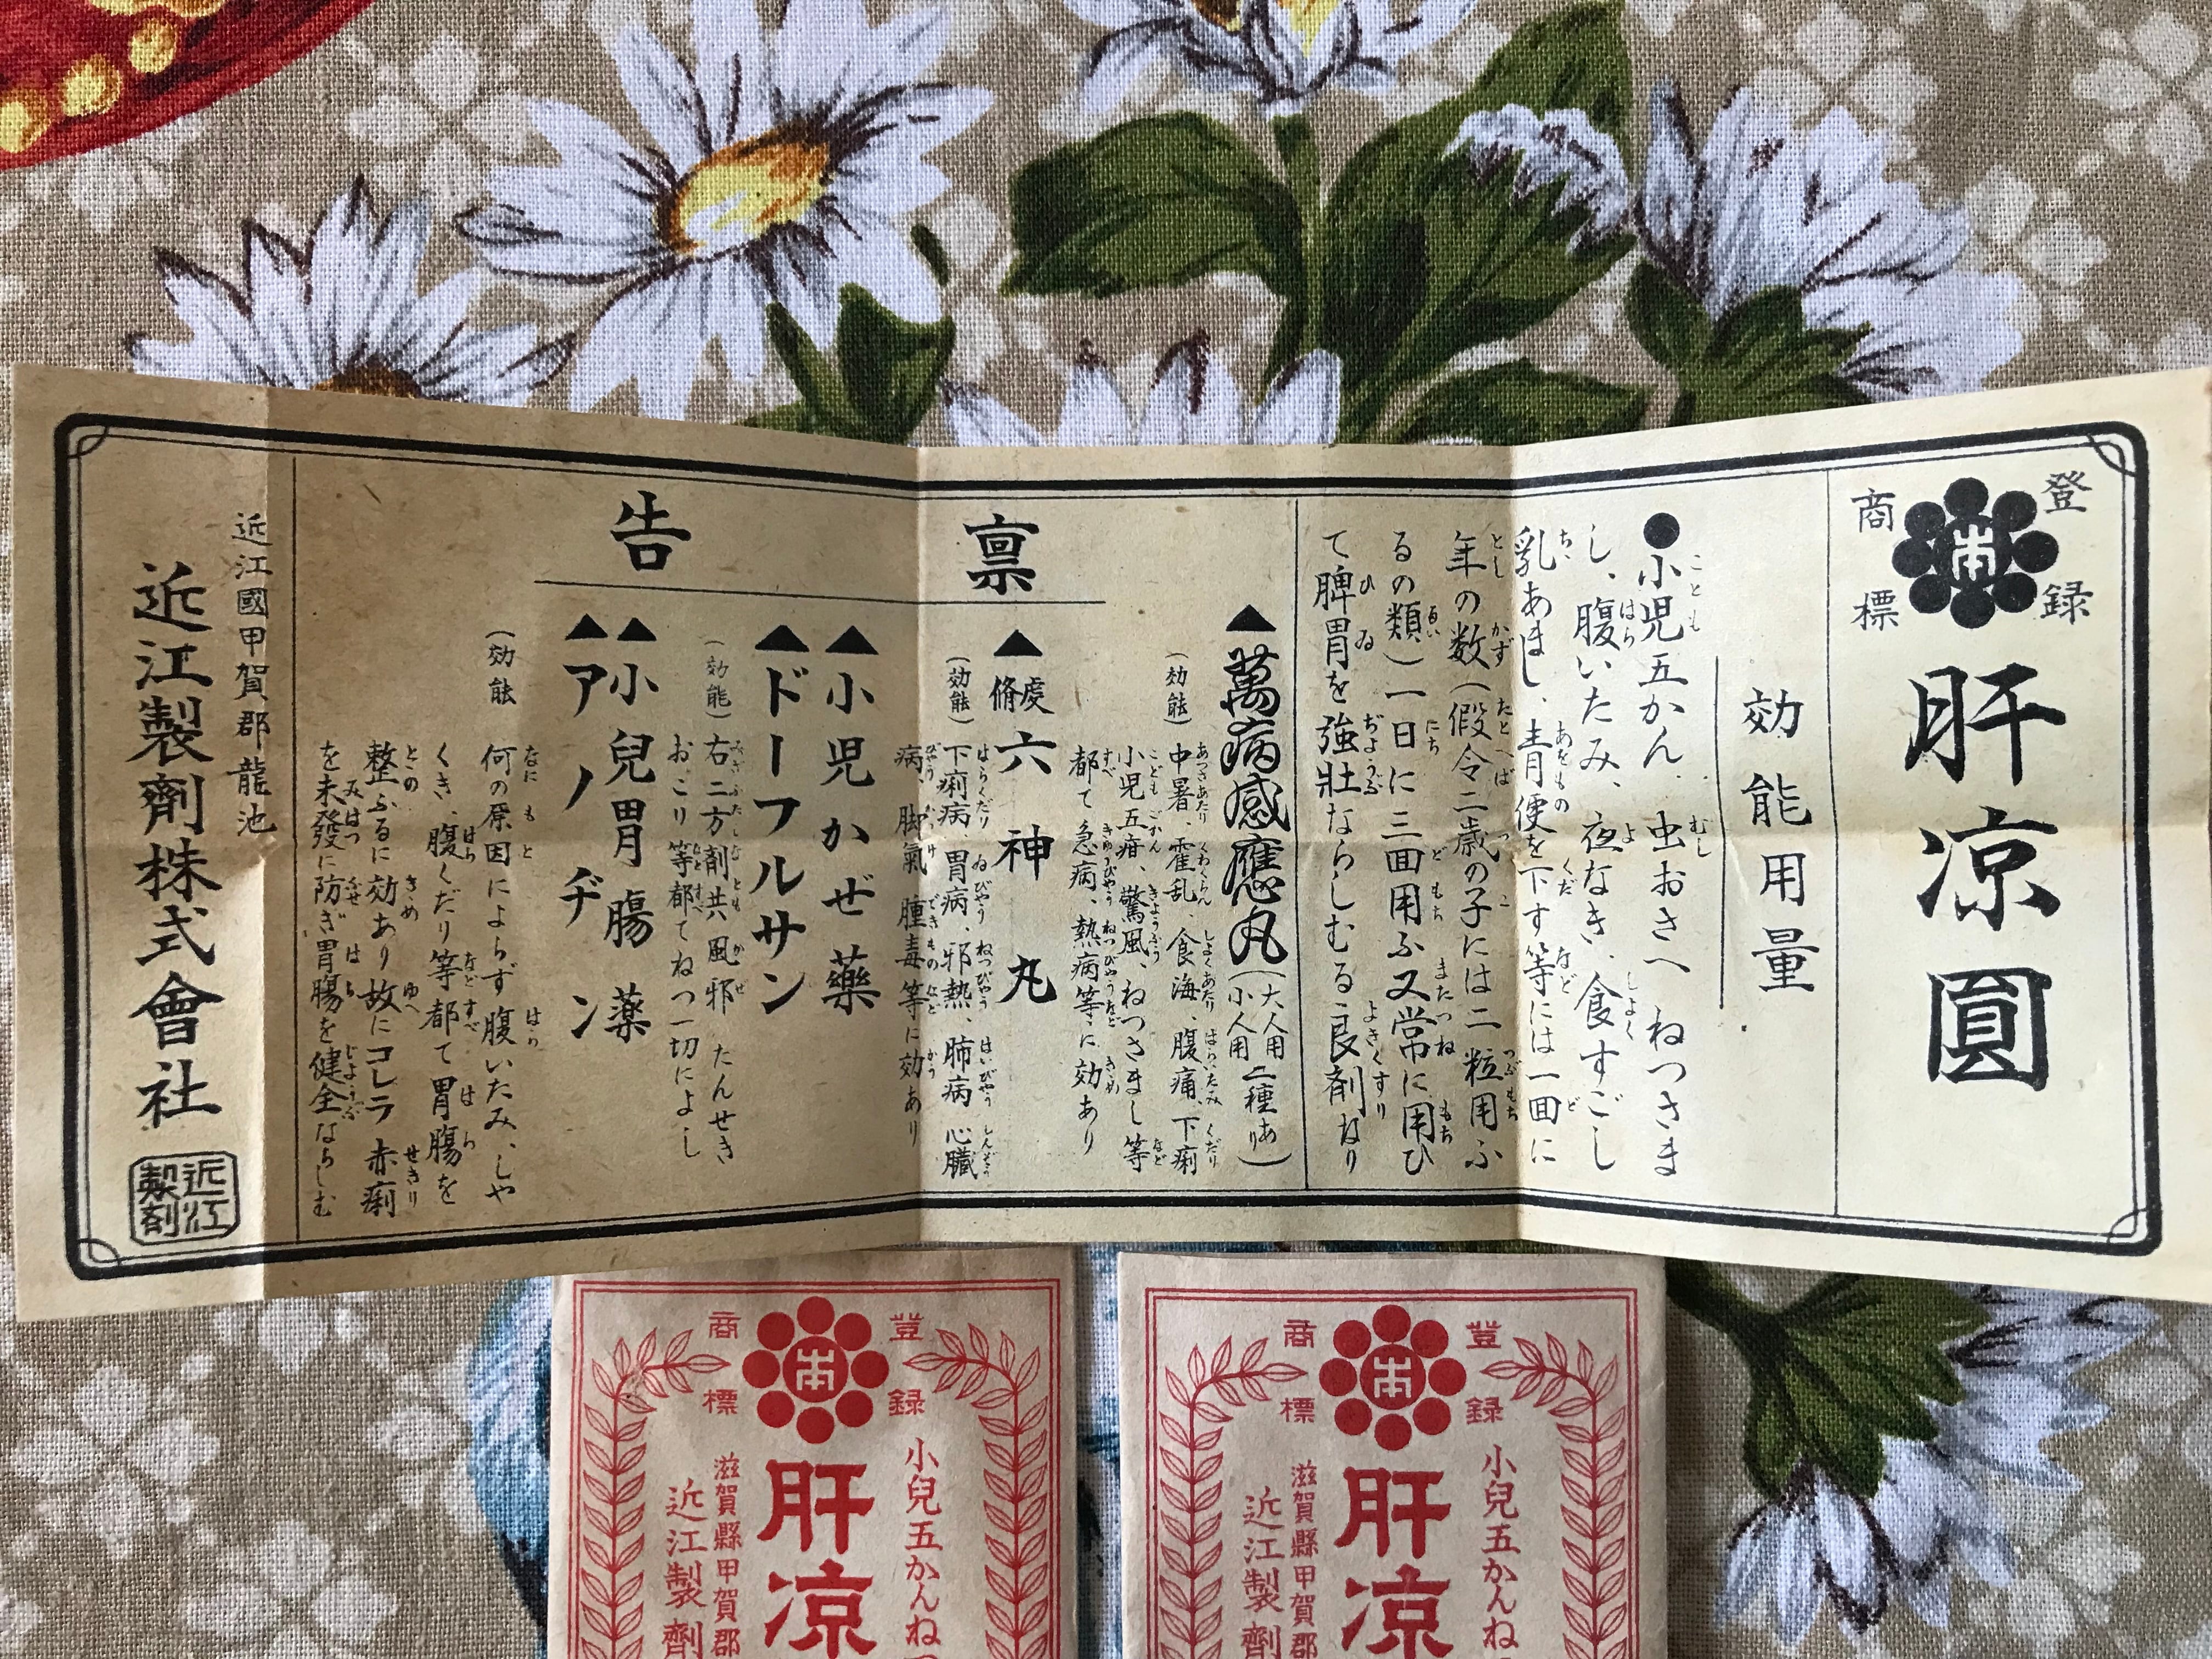 登録
商標
肝凉圓
効能用量
●小児五かん、虫おさへ ねつさま
し、腹いたみ、夜なき、食すごし
乳あまし、青便を下す等には一回に
年の数(假令二歳の子には二粒用ふ
るの類)一日に三回用ふ又常に用ひ
て脾胃を強壯ならしむる良剤なり
稟告
▲萬病感應丸(大人用小人用二種あり)
(効能)中暑、霍乱、食海、腹痛、下痢
小児五疳、驚風、ねつさまし等
都て急病、熱病等に効あり
▲處脩六神丸
(効能)下痢病、胃病、邪熱、肺病 心臓
病 脚氣 腫毒等に効あり
▲小児かぜ藥
▲ドーフルサン
(効能)右二方剤共風邪 たんせき
おこり等都てねつ一切によし
▲小兒胃腸薬
▲アノヂン
(効能)何の原因によらず腹いたみ、しや
くき、腹くだり等都て胃腸を
整ふるに効あり故にコレラ 赤痢
を未發に防ぎ胃腸を健全ならしむ
近江國甲賀郡龍池
近江製劑株式會社
近江製剤
登録
商標
小兒五かんね
肝凉
滋賀縣甲賀郡
近江製劑
登録
商標
小兒五かんね
肝凉
滋賀縣甲賀郡
近江製劑